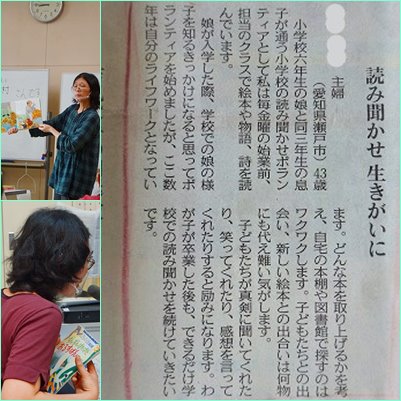 読み聞かせ 生きがいに
主婦
(愛知県瀬戸市) 43歳
小学校六年生の娘と同三年生の息
子が通う小学校の読み聞かせボラン
ティアとして私は毎金曜の始業前、
担当のクラスで絵本や物語、詩を読
んでいます。
娘が入学した際、学校での娘の様
子を知るきっかけになると思ってボ
ランティアを始めましたが、ここ数
年は自分のライフワークとなってい
ます。どんな本を取り上げるかを考
え、自宅の本棚や図書館で探すのは
ワクワクします。子どもたちとの出
会い、新しい絵本との出合いは何物
にも代え難い気がします。
子どもたちが真剣に聞いてくれた
り、笑ってくれたり、感想を言って
くれたりすると励みになります。わ
が子が卒業した後も、できるだけ学
校での読み聞かせを続けていきたい
です。